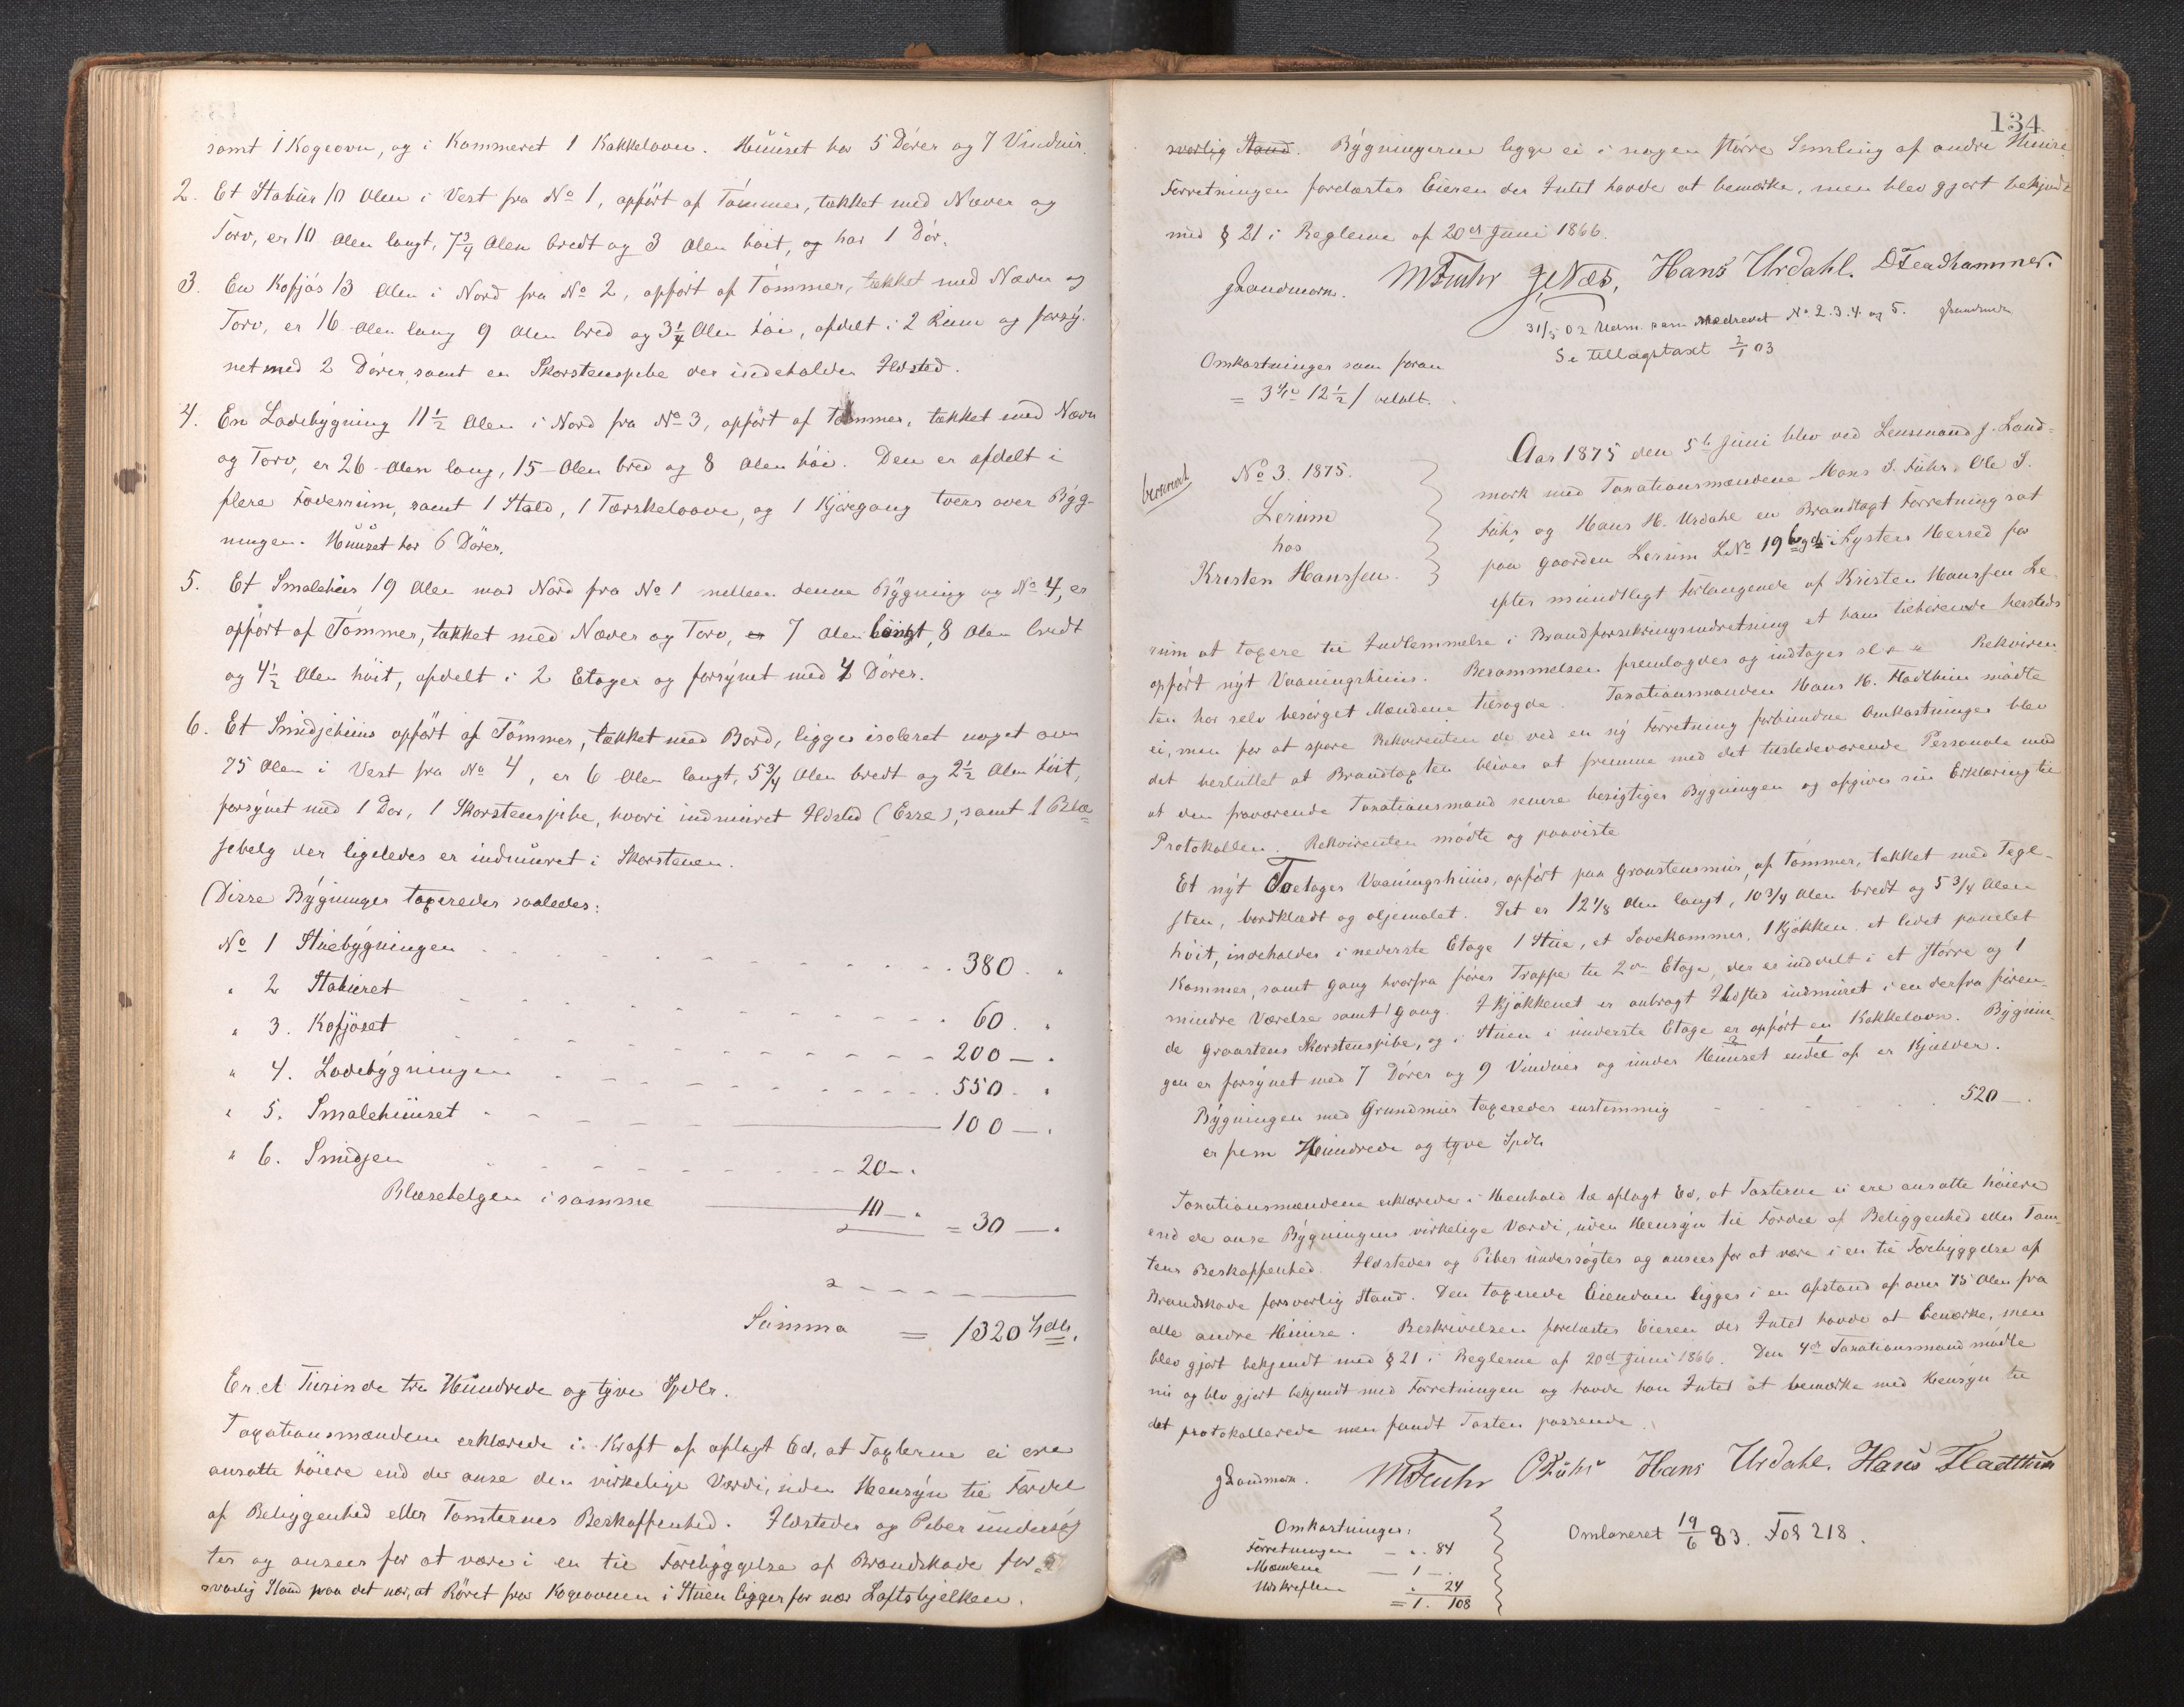 samt 1 Kogeovn, og i Kammeret 1 Kakkelovn. Huuset har 5 Dörer og 7 Vinduer.
2. Et Stabur 10 Alen i Vest fra No 1, opfört af Tömmer, tækket med Næver og
Torv, er 10 Alen langt, 7 3/4 Alen bredt og 3 Alen höit, og har 1 Dör.
3. En Kofjös 13 Alen i Nord fra No 2, opfört af Tömmer, tækket med Næver og
Torv, er 16 Alen lang 9 Alen bred og 3 1/4 Alen höi, afdelt i 2 Rum og forsy-
net med 2 Dörer, samt en Skorstenspibe der indeholder Ildsted.
4. En Ladebygning 11 1/2 Alen i Nord fra No 3, opfört af Tömmer, tækket med Næver
og Torv, er 26 Alen lang, 15 Alen bred og 8 Alen höi. Den er afdelt i
flere Foderrum, samt 1 Stald, 1 Tærskeloove, og 1 Kjöregang tvers over Byg-
ningen. Huuset har 6 Dörer.
5. Et Smalehus 19 Alen mod Nord fra No 1 mellem denne Bygning og No 4, er
opfört af Tömmer, tækket med Næver og Torv, er 7 Alen langt, 8 Alen bredt
og 4 1/2 Alen höit, afdelt i 2 Etager og forsynet med 4 Dörer.
6. Et Smidjehuus opfört af Tömmer, tækket med Bord, ligger isoleret noget over
75 Alen i Vest fra No 4, er 6 Alen langt, 5 3/4 Alen bredt og 2 1/2 Alen höit,
forsynet med 1 Dör, 1 Skorstenspibe, hvori indmuret Ildsted (Esse), samt 1 Blæ-
sebelg der ligeledes er indmuret i Skorstenen.
Disse Bygninger taxeredes saaledes:
No 1 Stuebygningen 380
" 2 Staburet 60
" 3. Kofjöset 200 —
" 4. Ladebygningen 550
" 5. Smalehuuset 100 —
" 6. Smidjen 20 —
Blæsebelgen i samme 10 — = 30 —
Summa = 1320 Spdlr.
Er et Tusinde tre Hundrede og tyve Spdlr.
Taxationsmændene erklærede i Kraft af aflagt Ed, at Taxterne ei ere
ansatte höiere end de anse den virkelige Værdi, uden Hensyn til Fordel
af Beliggenhed eller Tomternes Beskaffenhed. Ildsteder og Piber undersög-
tes og ansees for at være i en til Forebyggelse af Brandskade for-
svarlig Stand paa det nær, at Röret fra Kogeovnen i Stuen ligger for nær Loftsbjelken.
134
svarlig Stand. Bygningerne ligge ei i nogen större Samling af andre Huuse.
Forretningen forelæstes Eieren der Intet havde at bemærke, men blev gjort bekjendt
med § 21 i Reglerne af 20de Juni 1866.
JLandmark. MSFuhr JNæs, Hans Urdahl. DLeadhammer.
31/5 02 Udm. som nedrevet No 2.3.4. og 5. JLandmark
Se tillægstaxt 2/1 03
Omkostninger som foran
= 3 Spd 12 1/2 / betalt.
No 3. 1875.
Lerum
hos
Kristen Hanssen.
Aar 1875 den 5te Juni blev ved Lensmand J. Land-
mark med Taxationsmændene Mons S. Fuhr, Ole S.
Fuhr og Hans H. Urdahl en Brandtaxt Forretning sat
paa gaarden Lerum LNo 19 i Lyster Herred for
efter mundtligt forlangende af Kristen Hanssen Le-
rum at taxere til Indlemmelse i Brandforsikringsindretning et ham tilhörende hersteds
opfört nyt Vaaningshuus. Berammelsen fremlagdes og indtages Rekviren-
ten har selv besörget Mændene tilsagde. Taxationsmanden Hans H. Fladthuu mödte
ei, men for at spare Rekvirenten de ved en ny Forretning forbundne Omkostninger blev
det besluttet at Brandtaxten bliver at fremme med det tilstedeværende Personale mod
at den fraværende Taxationsmand senere besigtiger Bygningen og afgiver sin Erklæring til
Protokollen. Rekvirenten mödte og paaviste
Et nyt Toetages Vaaningshuus, opfört paa Graastensmur, af Tömmer, tækket med Tegl-
sten, bordklædt og oljemalet. Det er 12 1/8 Alen langt, 10 3/4 Alen bredt og 5 3/4 Alen
höit, indeholder i nederste Etage 1 Stue, et Sovekammer, 1 Kjökken, et lidet panelet
Kammer, samt Gang hvorfra förer Trappe til 2den Etage, der er inddelt i et större og 1
mindre Værelse samt 1 Gang. I Kjökkenet er anbragt Ildsted indmuret i en derfra fören-
de Graastens Skorstenspibe, og i Stuen i nederste Etage er opfört en Kakkelovn. Bygnin-
gen er forsynet med 7 Dörer og 9 Vinduer og under Huuset endel af er Kjælder.
Bygningen med Grundmur taxeredes enstemmig 520 —
er fem Hundrede og tyve Spdlr
Taxationsmændene erklærede i Henhold til aflagt Ed, at Taxterne ei ere ansatte höiere
end de anse Bygningens virkelige Værdi, uden Hensyn til Fordel af Beliggenhed eller Tom-
tens Beskaffenhed. Ildsteder og Piber undersögtes og ansees for at være i en til Forebyggelse af
Brandskade forsvarlig Stand. Den taxerede Eiendom ligger i en Afstand af over 75 Alen fra
alle andre Huuse. Beskrivelsen forelæstes Eieren der Intet havde at bemærke, men
blev gjort bekjendt med § 21 i Reglerne af 20de Juni 1866. Den 4de Taxationsmand mödte
nu og blev gjort bekjendt med Forretningen og havde han Intet at bemærke med Hensyn til
det protokollerede men fandt Taxten passende.
JLandmark. MSFuhr OSFuhr Hans Urdahl. Hans Fladthuu
Omkostninger:
Forretningen — " 84
Mændene — 1 —
Udskriften " 24
= 1. 108
Omtaxeret 19/6 83. Fol 218.